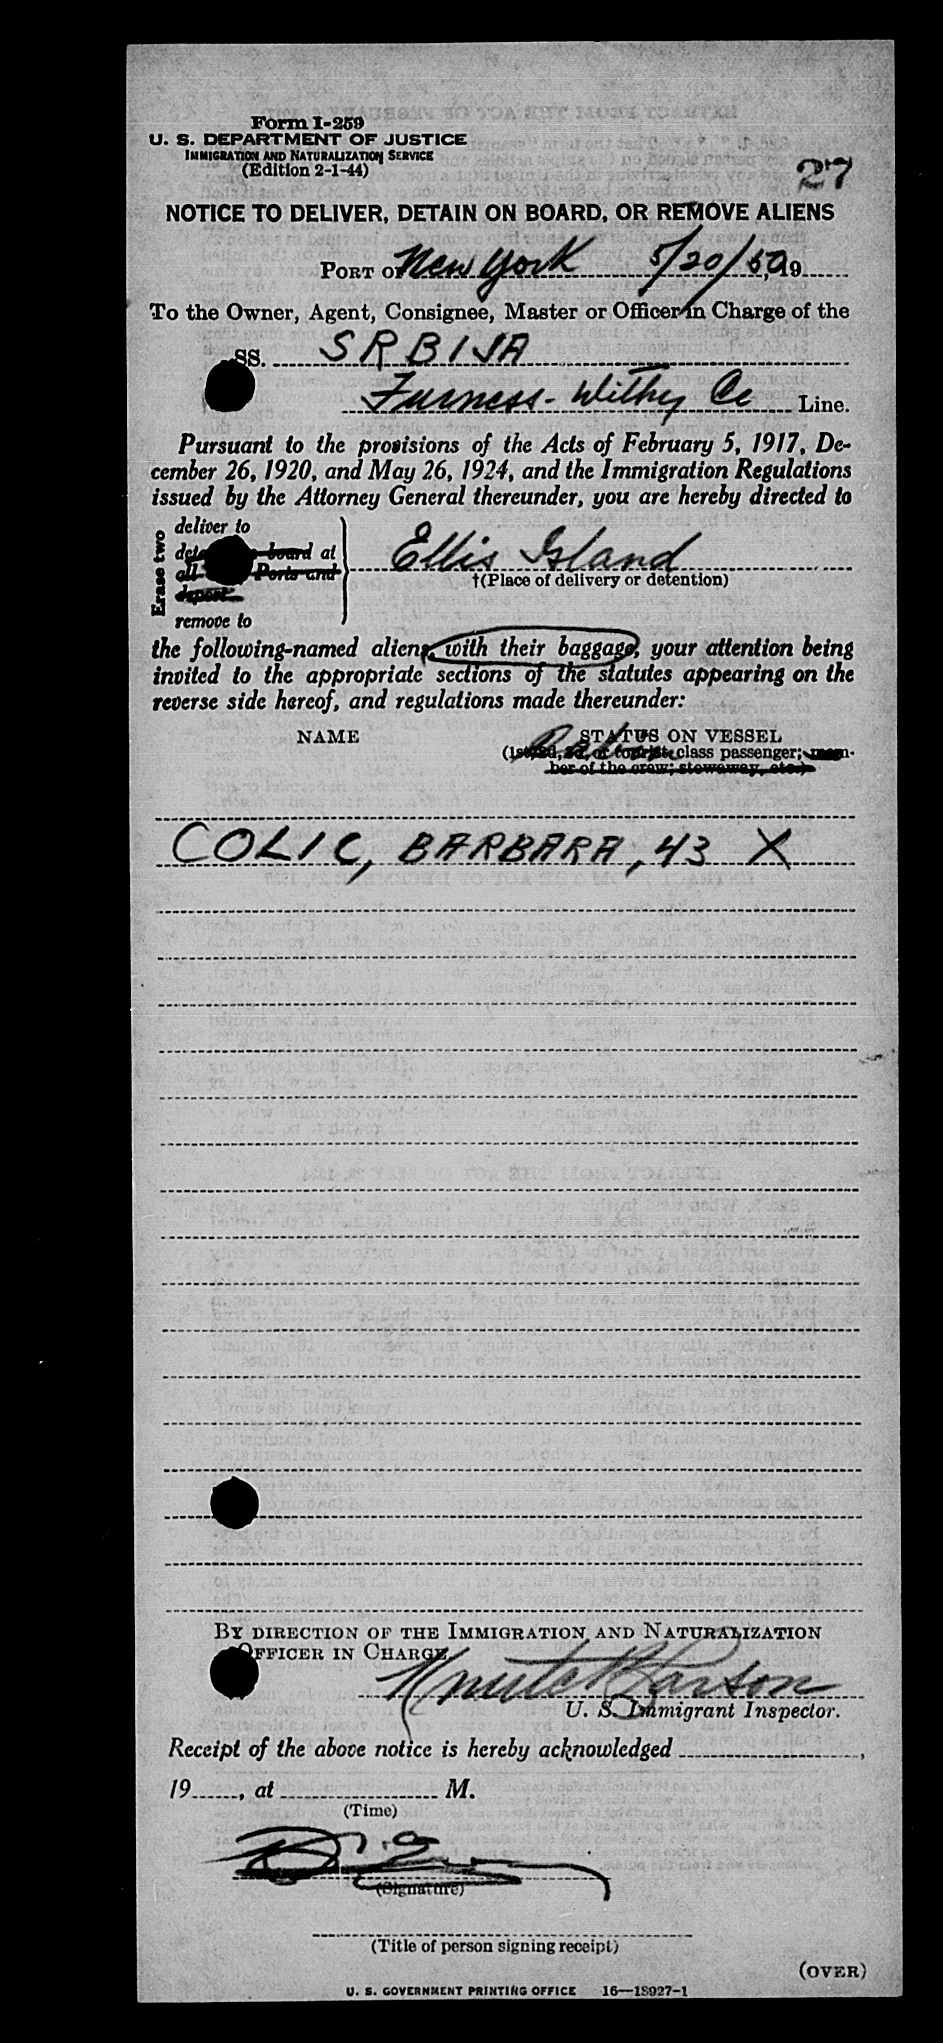 Form I-259
U. S. DEPARTMENT OF JUSTICE
IMMIGRATION AND NATURALIZATION SERVICE
(Edition 2-1-44)
27
NOTICE TO DELIVER, DETAIN ON BOARD, OR REMOVE ALIENS
PORT OF New York 5/20/50, 19
To the Owner, Agent, Consignee, Master or Officer in Charge of the
SS. SRBIJA
Furness-Withy Co Line.
Pursuant to the provisions of the Acts of February 5, 1917, De-
cember 26, 1920, and May 26, 1924, and the Immigration Regulations
issued by the Attorney General thereunder, you are hereby directed to
Erase two
deliver to
board at
Ports and
depost
remove to
Ellis Island
†(Place of delivery or detention)
the following-named aliens, with their baggage, your attention being
invited to the appropriate sections of the statutes appearing on the
reverse side hereof, and regulations made thereunder:
NAME
STATUS ON VESSEL
(1st, 2d, 3d, or tourist class passenger; mem-
ber of the crew; stowaway, etc.)
COLIC, BARBARA, 43 X
BY DIRECTION OF THE IMMIGRATION AND NATURALIZATION
OFFICER IN CHARGE
U. S. Immigrant Inspector.
Receipt of the above notice is hereby acknowledged ,
19 , at M.
(Time)
(Signature)
(Title of person signing receipt)
(OVER)
U. S. GOVERNMENT PRINTING OFFICE 16—18927-1